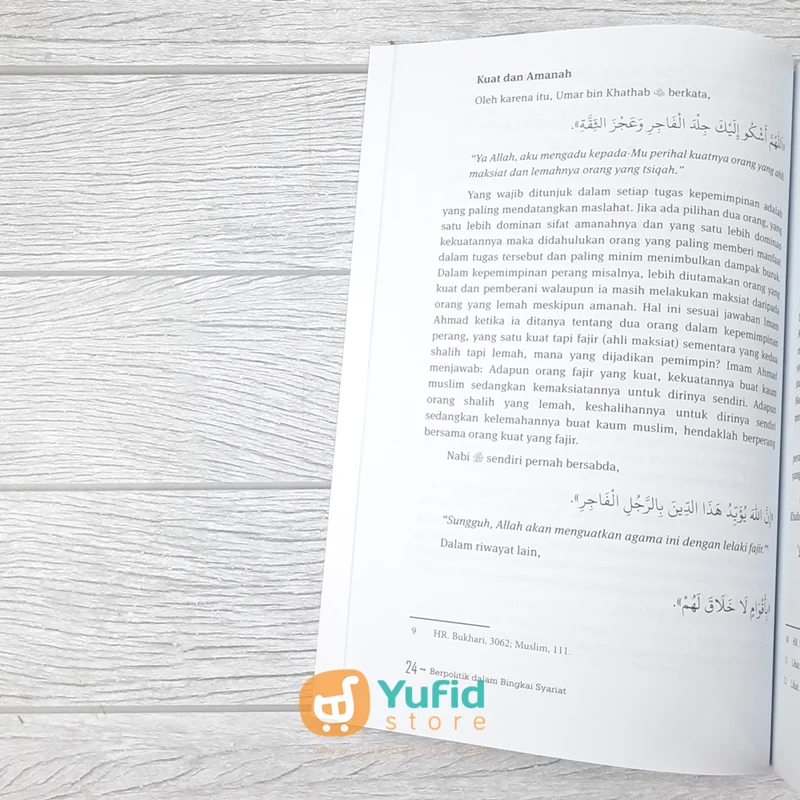 Kuat dan Amanah
Oleh karena itu, Umar bin Khathab ﷺ berkata,
«اللَّهُمَّ أَشْكُو إِلَيْكَ جِلْدَ الْفَاجِرِ وَعَجْزَ الثِّقَّةِ».
“Ya Allah, aku mengadu kepada-Mu perihal kuatnya orang yang ahli
maksiat dan lemahnya orang yang tsiqah.”
Yang wajib ditunjuk dalam setiap tugas kepemimpinan adalah
yang paling mendatangkan maslahat. Jika ada pilihan dua orang, yang
satu lebih dominan sifat amanahnya dan yang satu lebih dominan
kekuatannya maka didahulukan orang yang paling memberi manfaat
dalam tugas tersebut dan paling minim menimbulkan dampak buruk.
Dalam kepemimpinan perang misalnya, lebih diutamakan orang yang
kuat dan pemberani walaupun ia masih melakukan maksiat daripada
orang yang lemah meskipun amanah. Hal ini sesuai jawaban Imam
Ahmad ketika ia ditanya tentang dua orang dalam kepemimpinan
perang, yang satu kuat tapi fajir (ahli maksiat) sementara yang kedua
shalih tapi lemah, mana yang dijadikan pemimpin? Imam Ahmad
menjawab: Adapun orang fajir yang kuat, kekuatannya buat kaum
muslim sedangkan kemaksiatannya untuk dirinya sendiri. Adapun
orang shalih yang lemah, keshalihannya untuk dirinya sendiri
sedangkan kelemahannya buat kaum muslim, hendaklah berperang
bersama orang kuat yang fajir.
Nabi ﷺ sendiri pernah bersabda,
«إِنَّ اللَّهَ يُؤَيِّدُ هَذَا الدِّينَ بِالرَّجُلِ الْفَاجِرِ».
“Sungguh, Allah akan menguatkan agama ini dengan lelaki fajir.”⁹
Dalam riwayat lain,
«بِأَقْوَامٍ لَا خَلَاقَ لَهُمْ».
9 HR. Bukhari, 3062; Muslim, 111.
24 ~ Berpolitik dalam Bingkai Syariat
Yufid
store